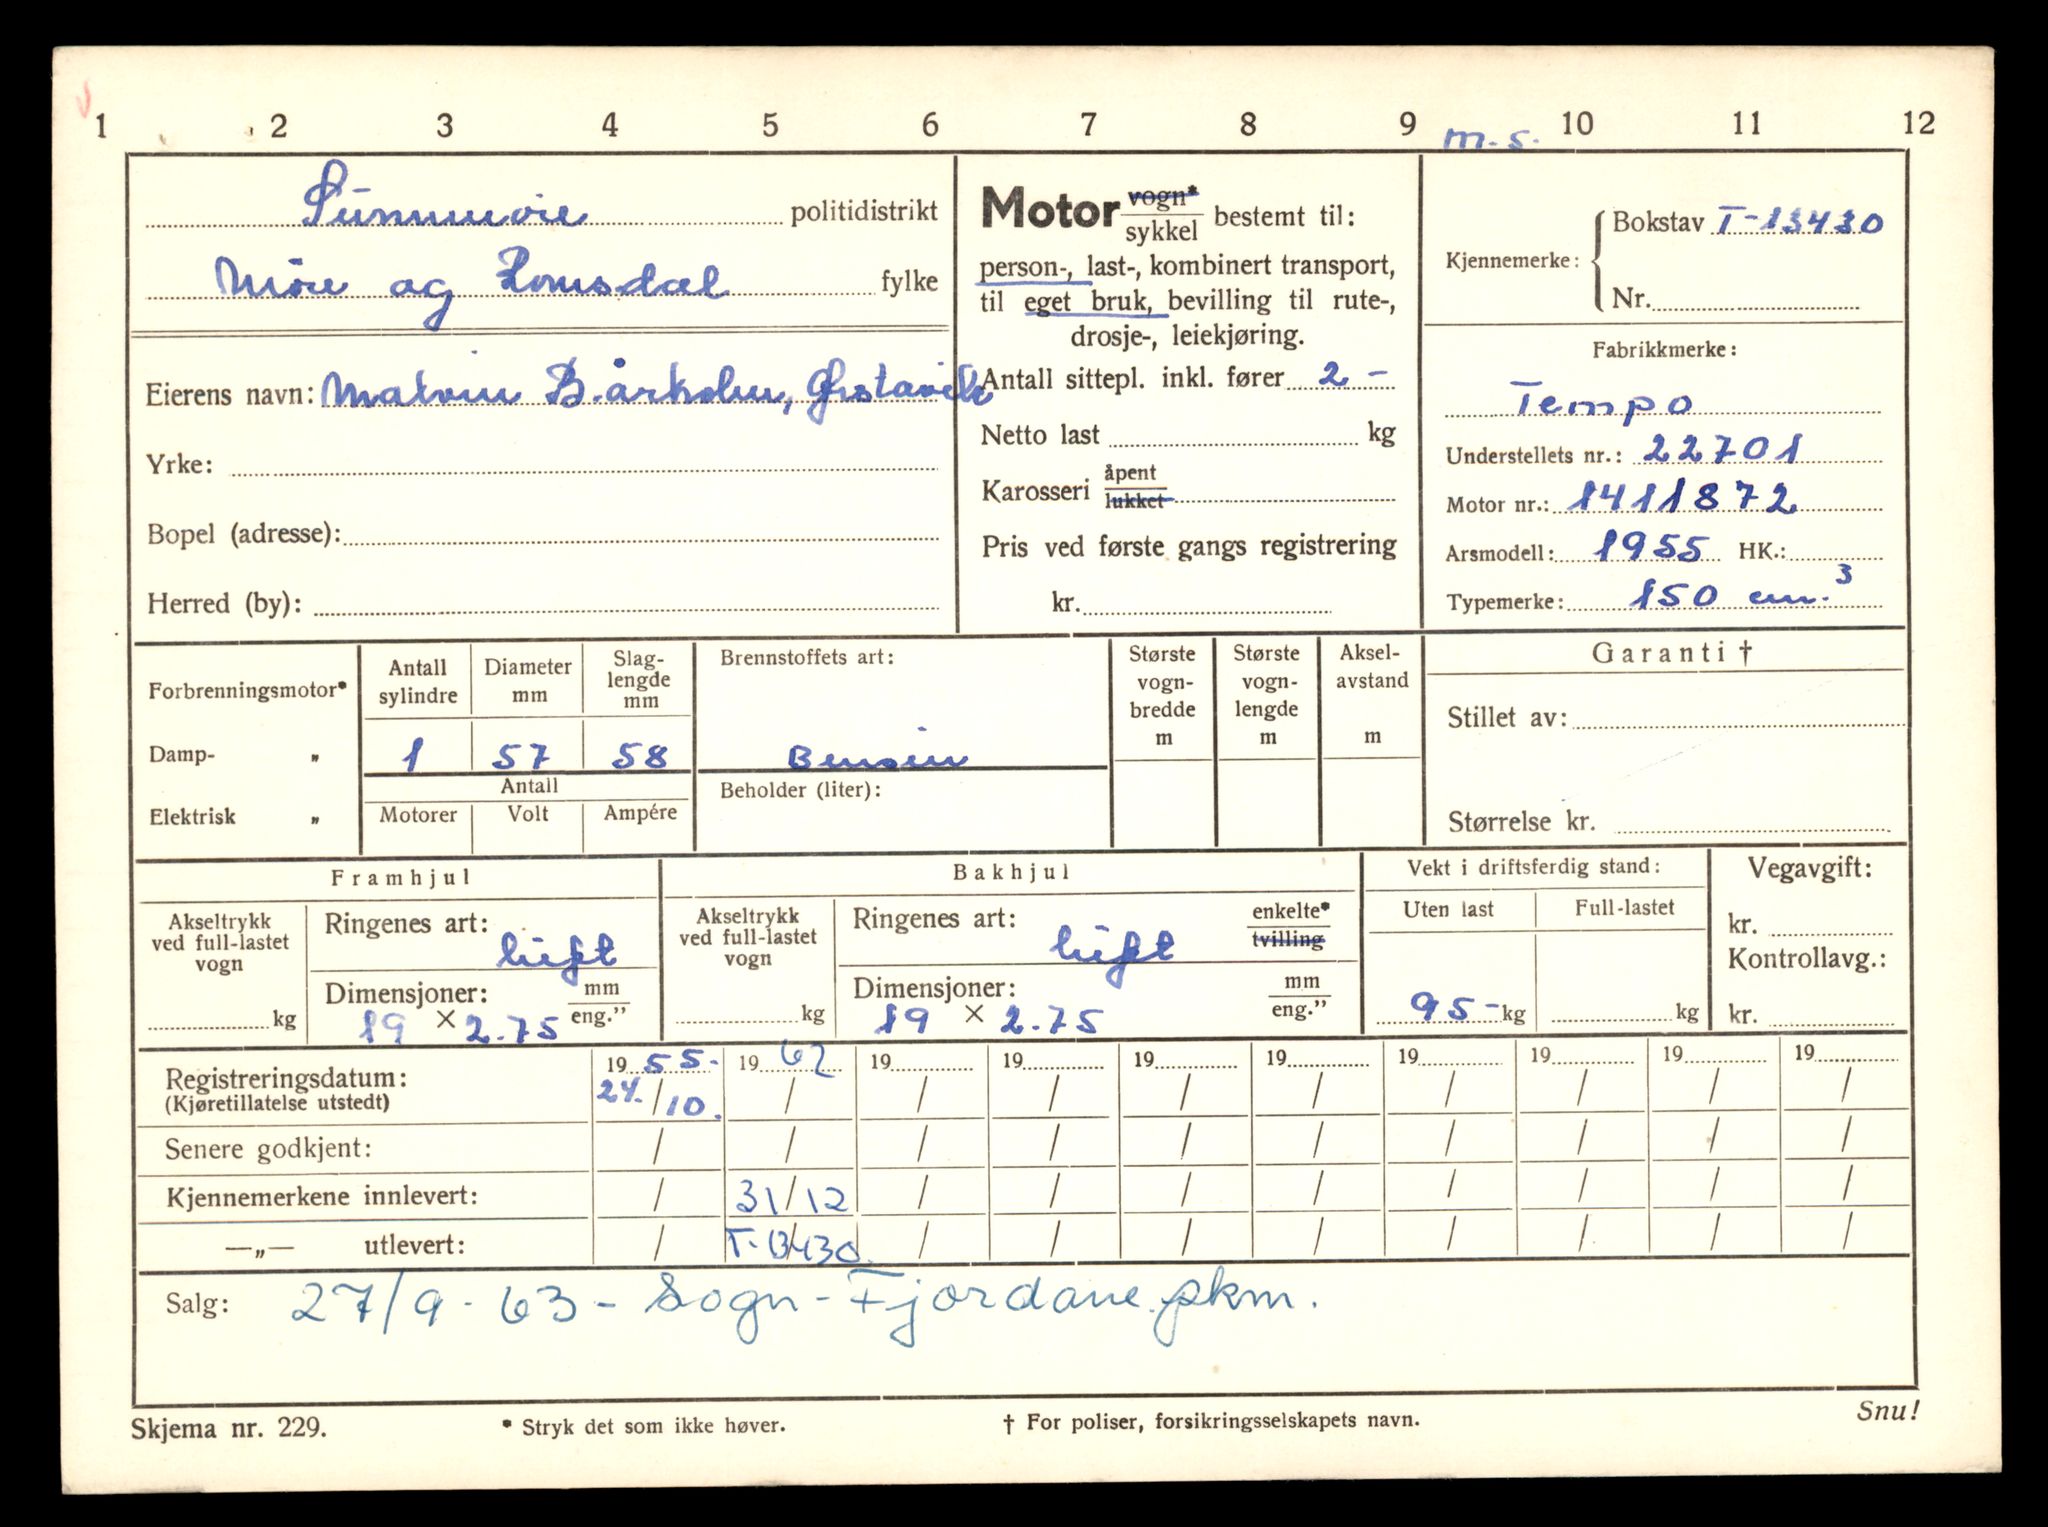 1 2 3 4 5 6 7 8 9 10 11 12
m.s.
Sunnmøre politidistrikt
Møre og Romsdal fylke
Eierens navn: Malvin Bårholm, Ørstavik
Yrke:
Bopel (adresse):
Herred (by):
Motor vogn* sykkel bestemt til:
person-, last-, kombinert transport,
til eget bruk, bevilling til rute-,
drosje-, leiekjøring.
Antall sittepl. inkl. fører 2 -
Netto last kg
Karosseri åpent lukket
Pris ved første gangs registrering
kr.
Kjennemerke: Bokstav T-13430
Nr.
Fabrikkmerke:
Tempo
Understellets nr.: 22701
Motor nr.: 1411872
Arsmodell: 1955 HK.:
Typemerke: 150 cm.³
Forbrenningsmotor*
Damp- „
Elektrisk „
Antall sylindre
1
Diameter mm
57
Slag-lengde mm
58
Antall
Motorer Volt Ampére
Brennstoffets art:
Bensin
Beholder (liter):
Største vogn-bredde m
Største vogn-lengde m
Aksel-avstand m
Garanti †
Stillet av:
Størrelse kr.
Framhjul
Akseltrykk ved full-lastet vogn
kg
Ringenes art:
luft
Dimensjoner: mm eng.”
19 × 2.75
Bakhjul
Akseltrykk ved full-lastet vogn
kg
Ringenes art: enkelte* tvilling
luft
Dimensjoner: mm eng.”
19 × 2.75
Vekt i driftsferdig stand:
Uten last Full-lastet
95- kg kg
Vegavgift:
kr.
Kontrollavg.:
kr.
Registreringsdatum: 19 55- 19 62 19 19 19 19 19 19 19 19
(Kjøretillatelse utstedt) 24./10. / / / / / / / / /
Senere godkjent: / / / / / / / / / /
Kjennemerkene innlevert: / 31/12 / / / / / / / /
—„— utlevert: / T-13430. / / / / / / / /
Salg: 27/9-63 - Sogn-Fjordane pkm.
Skjema nr. 229. * Stryk det som ikke høver. † For poliser, forsikringsselskapets navn. Snu!